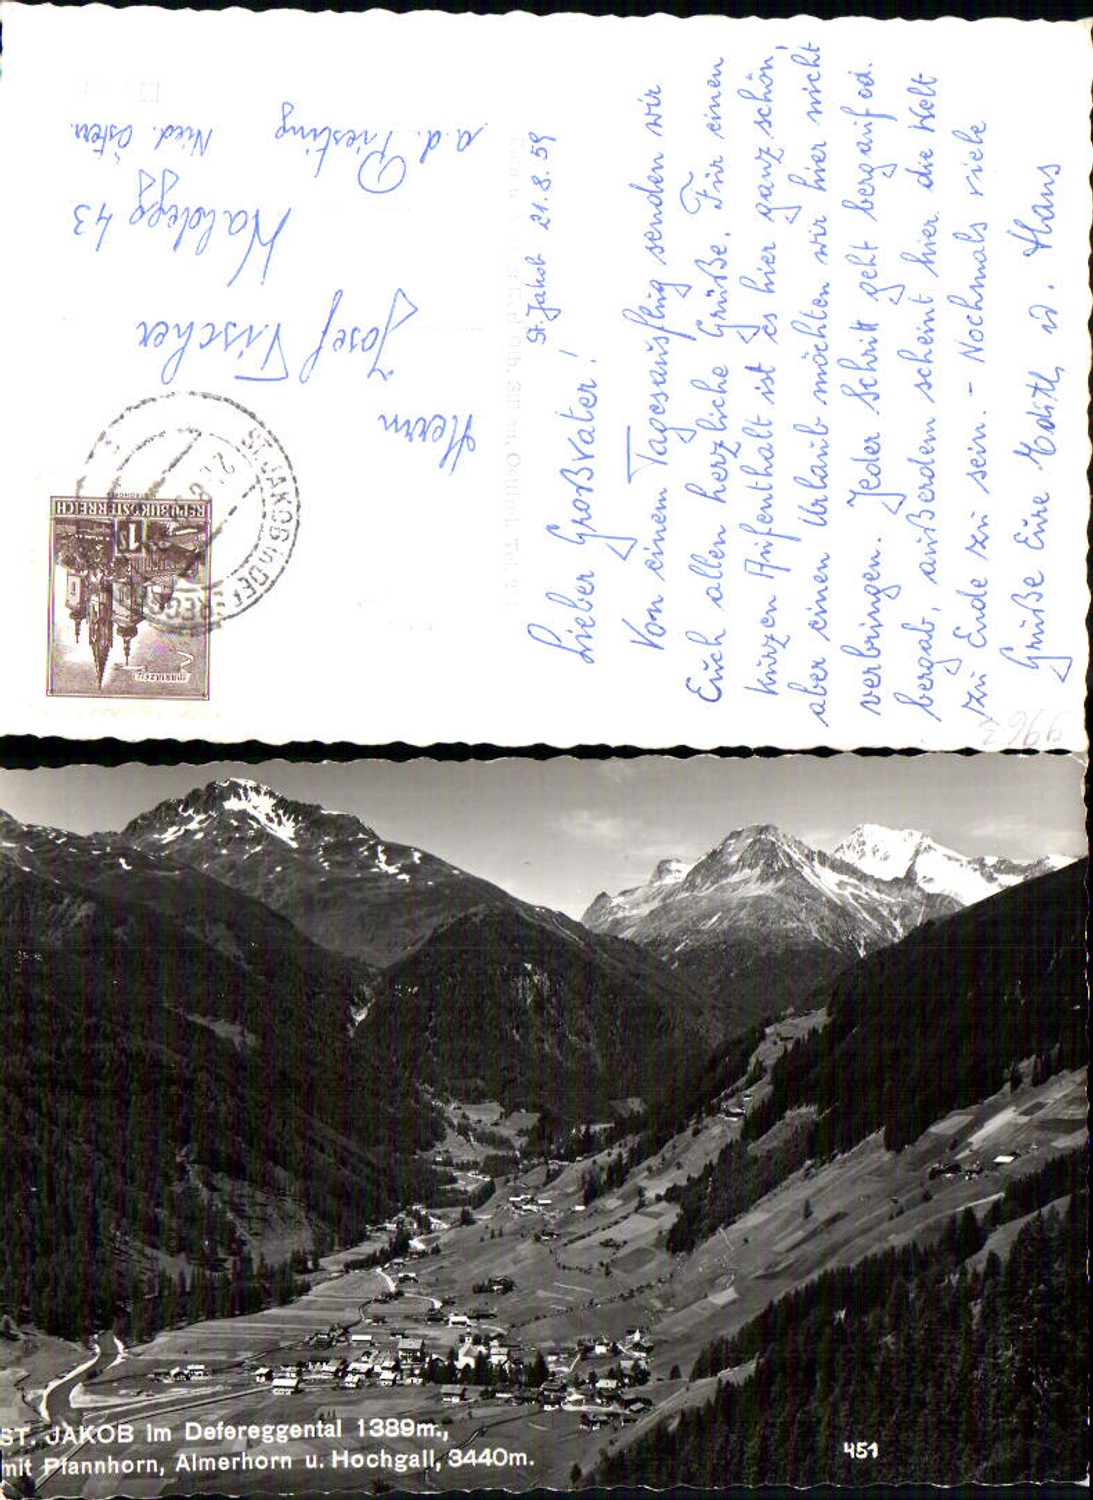 St. Jakob 21.8.59
Lieber Großvater!
Von einem Tagesausflug senden wir
Euch allen herzliche Grüße. Für einen
kurzen Aufenthalt ist es hier ganz schön,
aber einen Urlaub möchten wir hier nicht
verbringen. Jeder Schritt geht bergauf od.
bergab, außerdem scheint hier die Welt
zu Ende zu sein. - Nochmals viele
Grüße Eure Edith u. Hans
Herrn
Josef Fischer
Waldegg 43
a.d. Piesting
Nied. Östen.
REPUBLIK ÖSTERREICH
1
MARIAZELL
ST. JAKOB in DEFEREGGEN
9962
ST. JAKOB im Defereggental 1389m.,
mit Pfannhorn, Almerhorn u. Hochgall, 3440m.
451